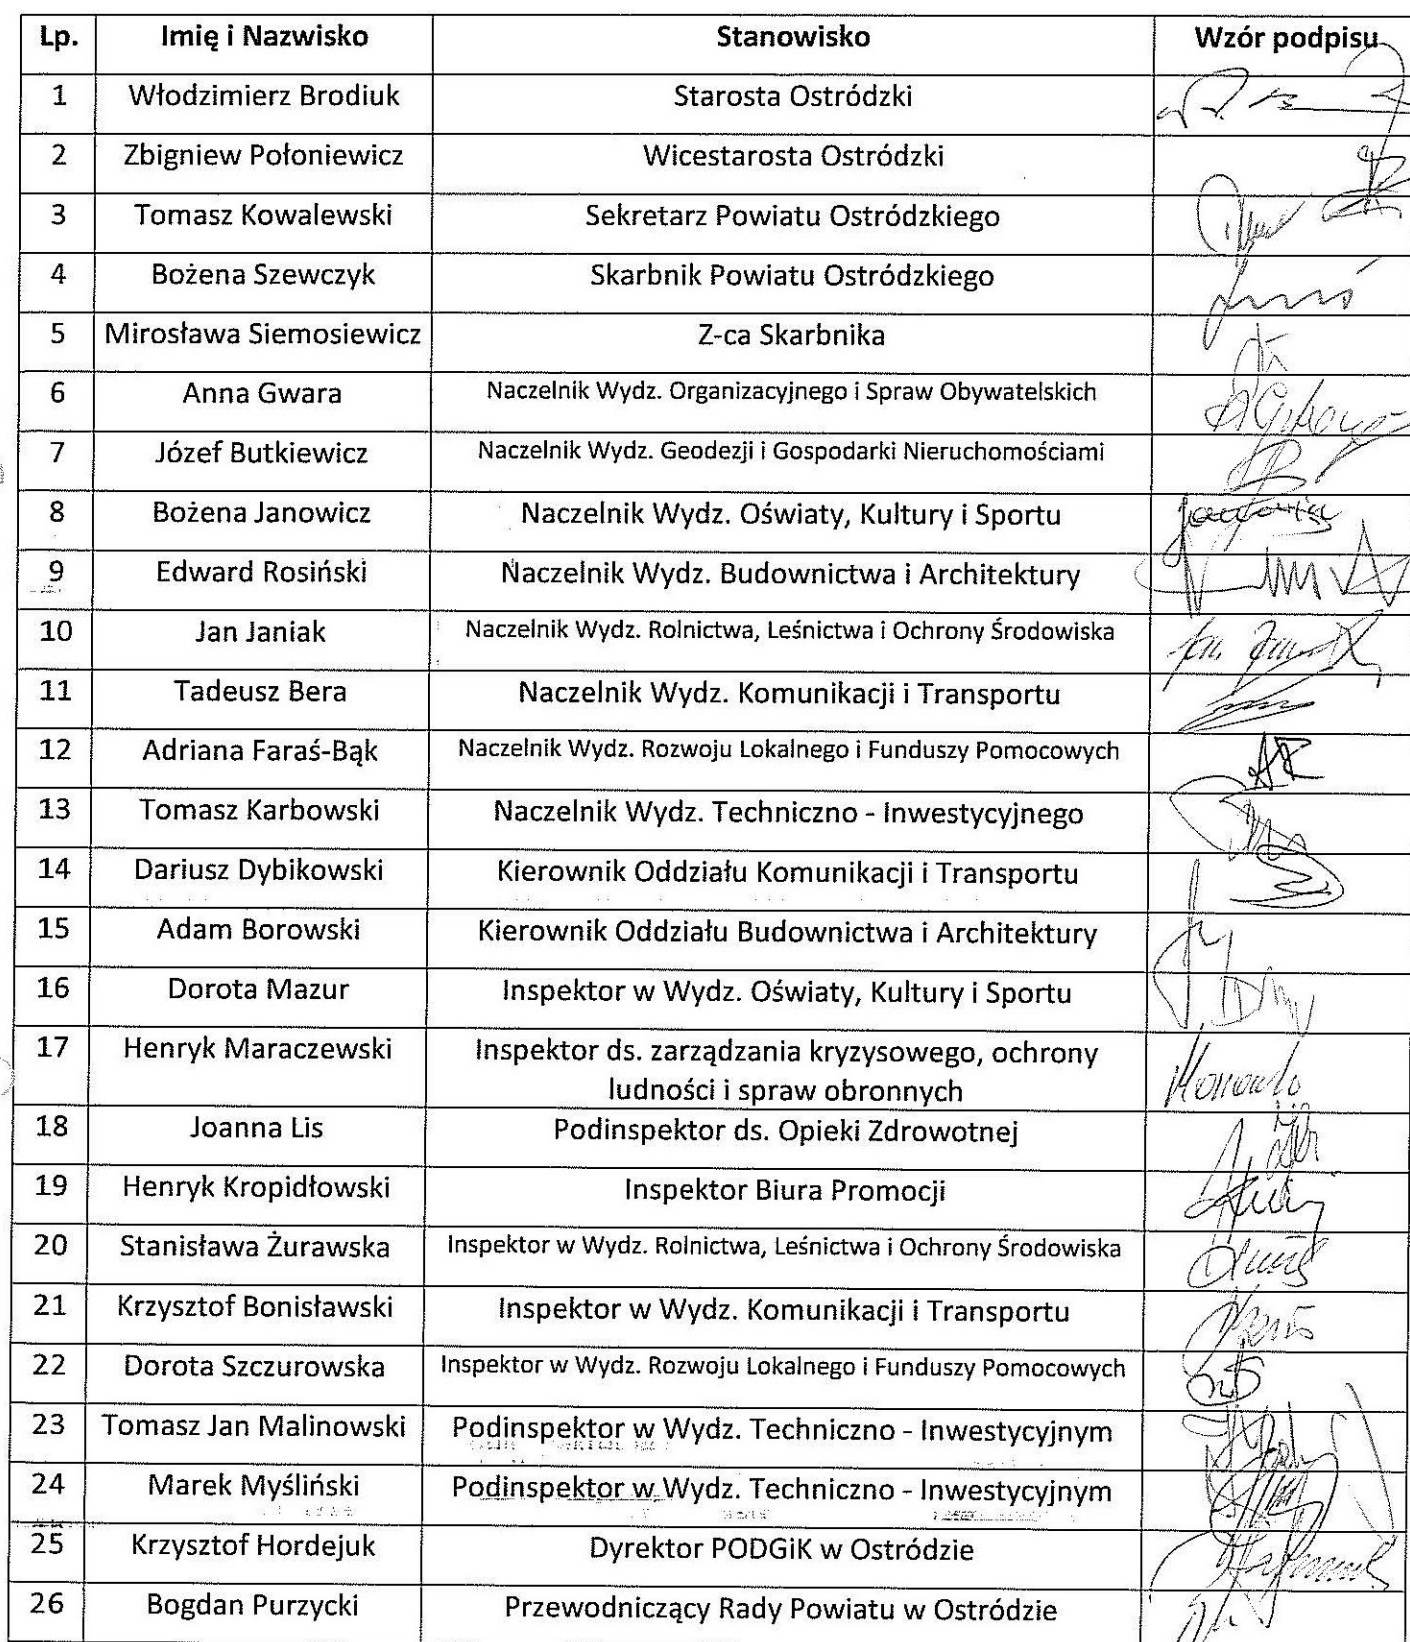 Lp. Imię i Nazwisko Stanowisko Wzór podpisu
1 Włodzimierz Brodiuk Starosta Ostródzki
2 Zbigniew Połoniewicz Wicestarosta Ostródzki
3 Tomasz Kowalewski Sekretarz Powiatu Ostródzkiego
4 Bożena Szewczyk Skarbnik Powiatu Ostródzkiego
5 Mirosława Siemosiewicz Z-ca Skarbnika
6 Anna Gwara Naczelnik Wydz. Organizacyjnego i Spraw Obywatelskich
7 Józef Butkiewicz Naczelnik Wydz. Geodezji i Gospodarki Nieruchomościami
8 Bożena Janowicz Naczelnik Wydz. Oświaty, Kultury i Sportu
9 Edward Rosiński Naczelnik Wydz. Budownictwa i Architektury
10 Jan Janiak Naczelnik Wydz. Rolnictwa, Leśnictwa i Ochrony Środowiska
11 Tadeusz Bera Naczelnik Wydz. Komunikacji i Transportu
12 Adriana Faraś-Bąk Naczelnik Wydz. Rozwoju Lokalnego i Funduszy Pomocowych
13 Tomasz Karbowski Naczelnik Wydz. Techniczno - Inwestycyjnego
14 Dariusz Dybikowski Kierownik Oddziału Komunikacji i Transportu
15 Adam Borowski Kierownik Oddziału Budownictwa i Architektury
16 Dorota Mazur Inspektor w Wydz. Oświaty, Kultury i Sportu
17 Henryk Maraczewski Inspektor ds. zarządzania kryzysowego, ochrony
ludności i spraw obronnych
18 Joanna Lis Podinspektor ds. Opieki Zdrowotnej
19 Henryk Kropidłowski Inspektor Biura Promocji
20 Stanisława Żurawska Inspektor w Wydz. Rolnictwa, Leśnictwa i Ochrony Środowiska
21 Krzysztof Bonisławski Inspektor w Wydz. Komunikacji i Transportu
22 Dorota Szczurowska Inspektor w Wydz. Rozwoju Lokalnego i Funduszy Pomocowych
23 Tomasz Jan Malinowski Podinspektor w Wydz. Techniczno - Inwestycyjnym
24 Marek Myśliński Podinspektor w Wydz. Techniczno - Inwestycyjnym
25 Krzysztof Hordejuk Dyrektor PODGiK w Ostródzie
26 Bogdan Purzycki Przewodniczący Rady Powiatu w Ostródzie